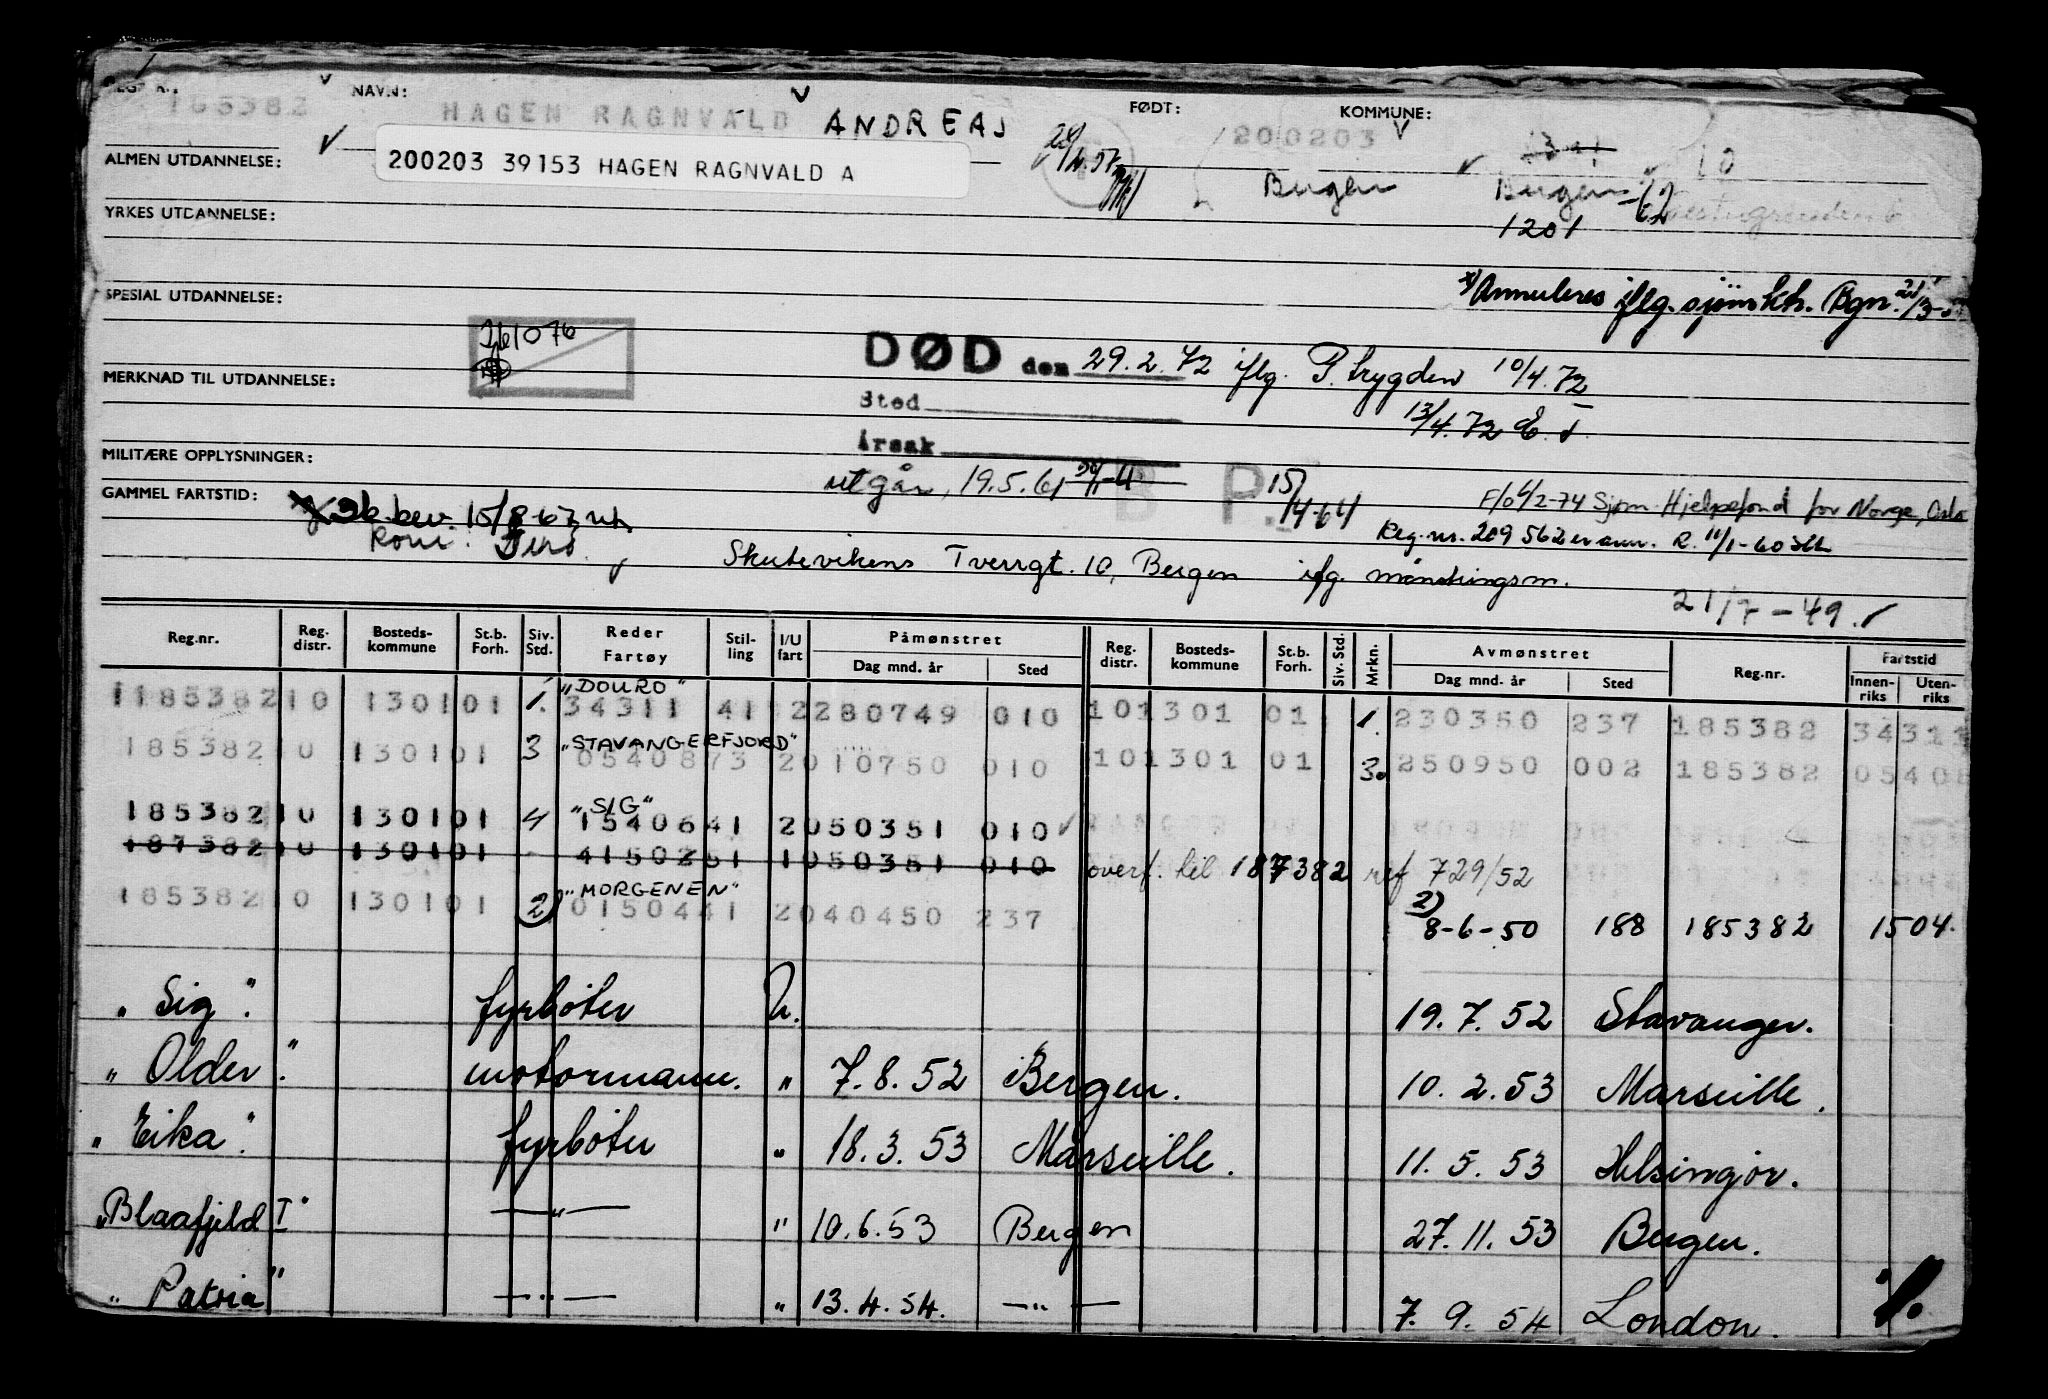 185382 NAVN: HAGEN RAGNVALD ANDREAS FØDT: 200203 KOMMUNE: 10
ALMEN UTDANNELSE: 200203 39153 HAGEN RAGNVALD A Bergen Bergen
YRKES UTDANNELSE: 1201
SPESIAL UTDANNELSE: *) Annuleres iflg. sjømktr. Bgn.
DØD den 29.2.72 iflg. P. trygden 10/4.72
MERKNAD TIL UTDANNELSE:
Sted 13/4.72
Årsak
MILITÆRE OPPLYSNINGER: utgår, 19.5.61 B P. 15/4-64
GAMMEL FARTSTID: 15/8-67 F/o 4/2-74 Sjøm. Hjelpefond for Norge, Oslo
Reg.nr. 209562 er ann. R. 11/1-60
Skutevikens Tverrgt. 10, Bergen iflg. mønstringsm.
21/7-49.
Reg.nr. Reg. distr. Bostedskommune St.b. Forh. Siv. Std. Reder Fartøy Stilling I/U fart Påmønstret Dag mnd. år Sted Reg. distr. Bostedskommune St.b. Forh. Siv. Std. Mrkn. Avmønstret Dag mnd. år Sted Reg.nr. Fartstid Innenriks Utenriks
"DOURO"
1185382 10 1301 01 1. 34311 41 2 280749 010 10 1301 01 1. 230350 237 185382 34311
"STAVANGERFJORD"
185382 10 1301 01 3 05408 73 2 010750 010 10 1301 01 3. 250950 002 185382 05408
"SIG"
185382 10 1301 01 4 15406 41 2 050351 010
187382 10 1301 01 41502 51 1 050351 010 overf. til 187382 ref 729/52
"MORGENEN"
185382 10 1301 01 2) 01504 41 2 040450 237 2) 8-6-50 188 185382 1504.
"Sig". fyrbøter U. 19.7.52 Stavanger.
"Older". motormann. " 7.8.52 Bergen. 10.2.53 Marseille.
"Eika". fyrbøter " 18.3.53 Marseille. 11.5.53 Helsingør.
"Blaafjeld I" —"— " 10.6.53 Bergen 27.11.53 Bergen.
"Patria" —"— " 13.4.54. —"— 7.9.54 London.